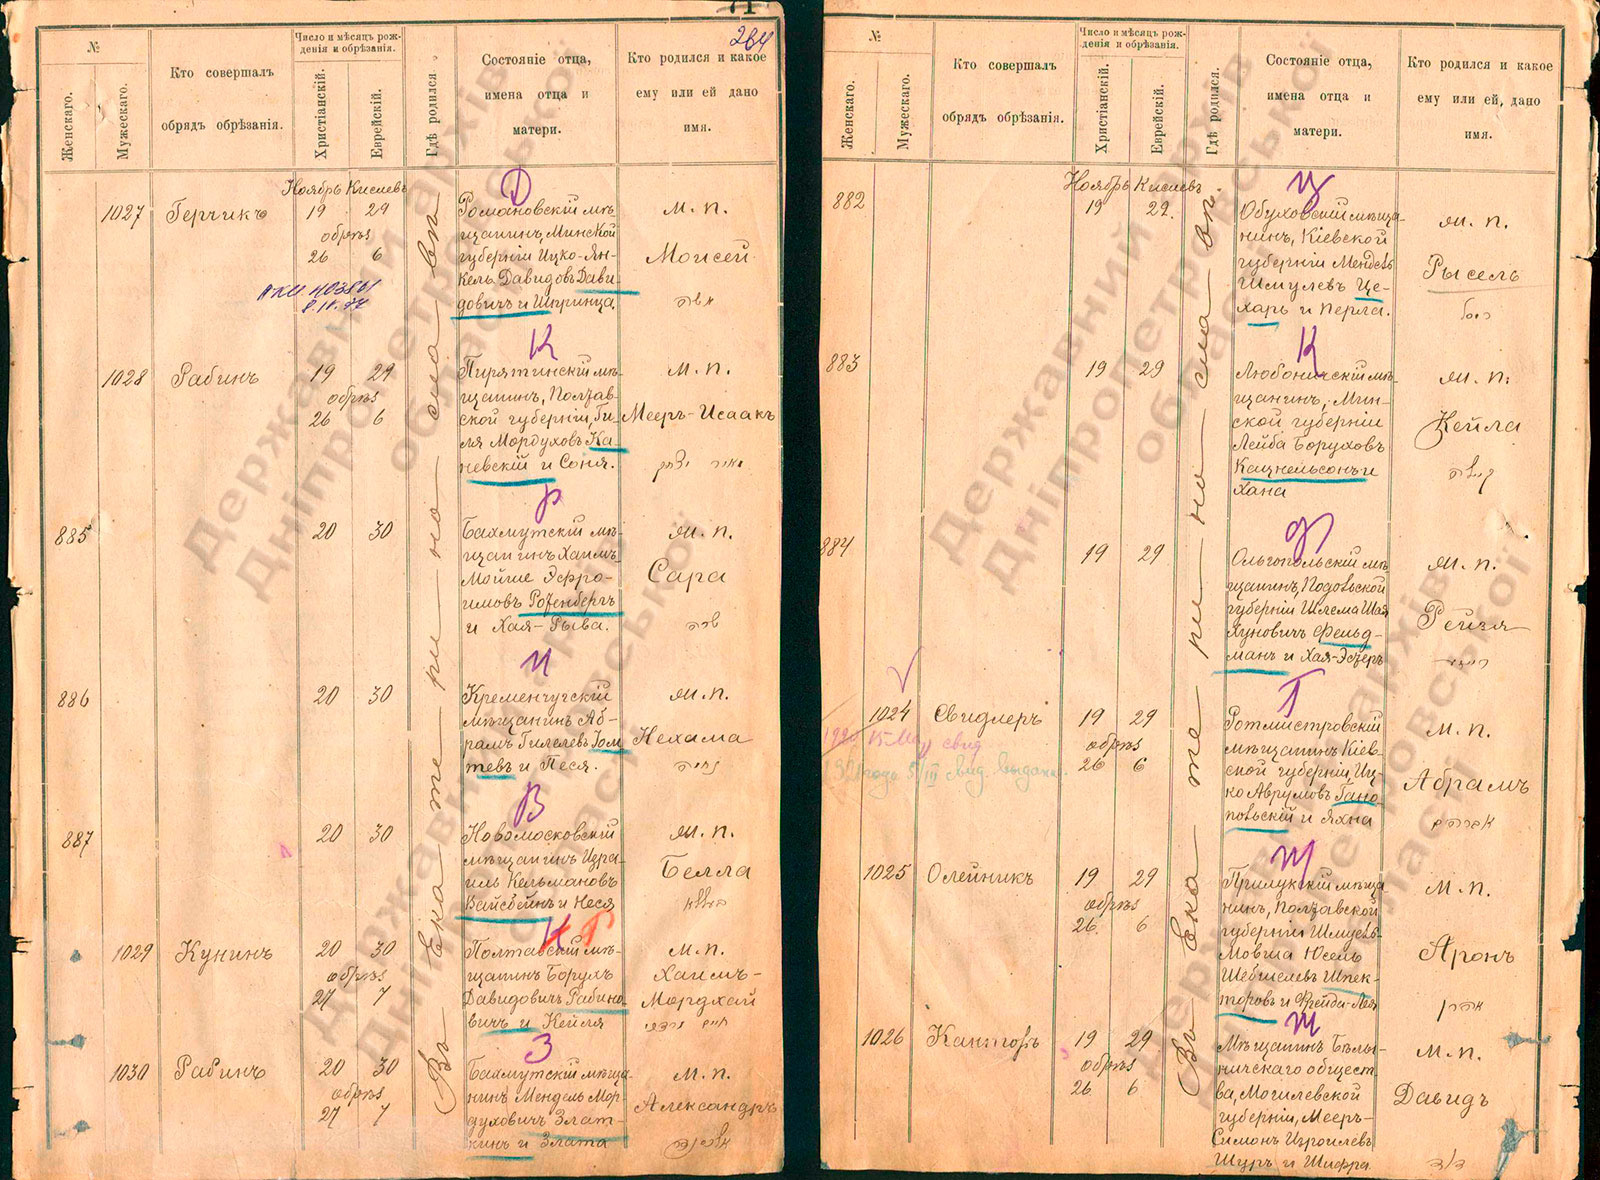 71
264
№
Женскаго.
Мужескаго.
Кто совершалъ
обрядъ обрѣзанія.
Число и мѣсяцъ рож-
денія и обрѣзанія.
Христіанскій.
Еврейскій.
Гдѣ родился.
Состояніе отца,
имена отца и
матери.
Кто родился и какое
ему или ей дано
имя.
Ноябрь Кислевъ
Въ Екатеринославѣ
1027
Герчикъ
19 29
обрѣз
26 6
Д
Романовскій мѣ-
щанинъ, Минской
губерніи Ицко-Ян-
кель Давидовъ Дави-
довичъ и Шпринца.
М. п.
Моисей
משה
1028
Рабинъ
19 29
обрѣз
26 6
К
Пирятинскій мѣ-
щанинъ, Полтав-
ской губерніи, Ги-
ля Мордуховъ Ка-
невскій и Соня.
М. п.
Мееръ-Исаакъ
מאיר יצחק
885
20 30
Р
Бахмутскій мѣ-
щанинъ Хаимъ
Мойше Эфро-
имовъ Розенбергъ
и Хая-Рыва.
М. п.
Сара
שרה
886
20 30
И
Кременчугскій
мѣщанинъ Аб-
рамъ Гилелевъ Іом
товъ и Песя.
М. п.
Нехама
נחמה
887
20 30
В
Новомосковскій
мѣщанинъ Изра-
иль Кельмановъ
Вайсбейнъ и Неся
М. п.
Белла
1029
Кунинъ
20 30
обрѣз
27 7
К Р
Полтавскій мѣ-
щанинъ Борухъ
Давидовичъ Рабино-
вичъ и Кейля
М. п.
Хаимъ-
Мордхай
חיים מרדכי
1030
Рабинъ
20 30
обрѣз
27 7
З
Бахмутскій мѣща-
нинъ Мендель Мор
духовичъ Злат-
кинъ и Злата
М. п.
Александръ
№
Женскаго.
Мужескаго.
Кто совершалъ
обрядъ обрѣзанія.
Число и мѣсяцъ рож-
денія и обрѣзанія.
Христіанскій.
Еврейскій.
Гдѣ родился.
Состояніе отца,
имена отца и
матери.
Кто родился и какое
ему или ей, дано
имя.
Ноябрь Кислевъ
Въ Екатеринославѣ
882
19 29.
Ц
Обуховскій мѣща-
нинъ, Кіевской
губерніи Мендель
Шмулевъ Це-
харь и Перла.
М. п.
Рысель
883
19 29
К
Любоничскій мѣ-
щанинъ, Мин-
ской губерніи
Лейба Боруховъ
Кацнельсонъ и
Хана
М. п.
Кейла
884
19 29
Ф
Ольгопольскій мѣ-
щанинъ, Подольской
губерніи Шлема Шая
Хуновичъ Фельд-
манъ и Хая-Эстеръ
М. п.
Рейзя
1024
Свидлеръ
19 29
обрѣз
26 6
Г
Ротмистровскій
мѣщанинъ Кіев-
ской губерніи, Иц-
ко Аврумовъ Гано-
польскій и Яхна
М. п.
Абрамъ
אברהם
1025
Олейникъ
19 29
обрѣз
26. 6
Ш
Прилукскій мѣща-
нинъ, Полтавской
губерніи Шмуель-
Мовша Юсель
Шевшелевъ Шпек-
торовъ и Фрейда-Лея
М. п.
Аронъ
אהרן
1026
Канторъ
19 29
обрѣз
26 6
Ш
Мѣщанинъ Бѣлы-
ничскаго общест
ва, Могилевской
губерніи, Мееръ-
Симонъ Изроилевъ
Шуръ и Шифра
М. п.
Давидъ
דוד
Державний архів
Дніпропетровської
області